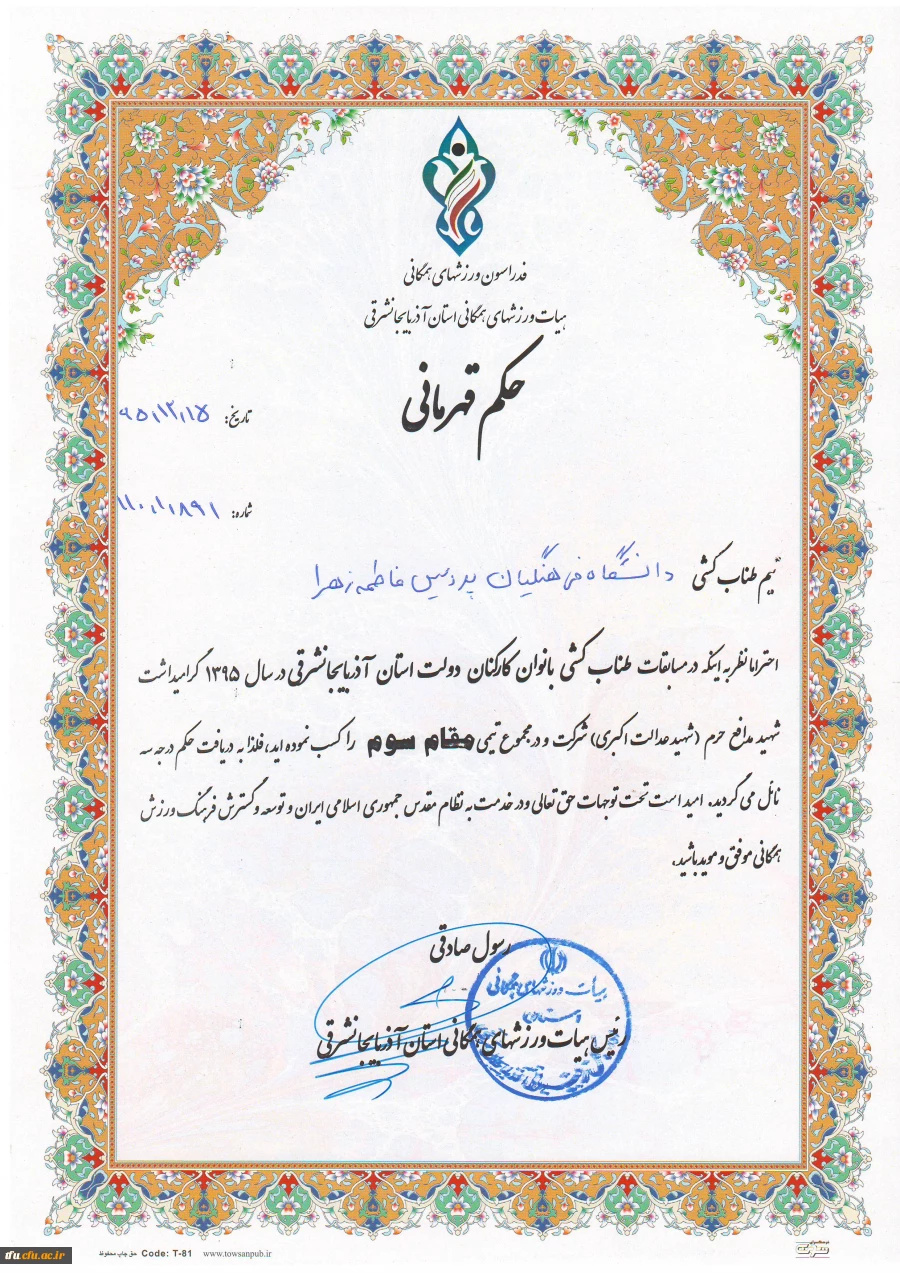 فدراسیون ورزشهای همگانی
هیات ورزشهای همگانی استان آذربایجانشرقی
حکم قهرمانی
تاریخ: ۹۵٫۱۲٫۱۵
شماره: ۱۱۰٫۱٫۱۸۹۱
تیم طناب کشی دانشگاه فرهنگیان پردیس فاطمه زهرا
احتراما نظر به اینکه در مسابقات طناب کشی بانوان کارکنان دولت استان آذربایجانشرقی در سال ۱۳۹۵ گرامیداشت
شهید مدافع حرم (شهید عدالت اکبری) شرکت و در مجموع تیمی مقام سوم را کسب نموده اید، فلذا به دریافت حکم درجه سه
نائل می گردید. امید است تحت توجهات حق تعالی و در خدمت به نظام مقدس جمهوری اسلامی ایران و توسعه و گسترش فرهنگ ورزش
همگانی موفق و موید باشید.
رسول صادقی
هیات ورزشهای همگانی
استان
رئیس هیات ورزشهای همگانی استان آذربایجانشرقی
tfu.cfu.ac.ir
حق چاپ محفوظ Code: T-81 www.towsanpub.ir